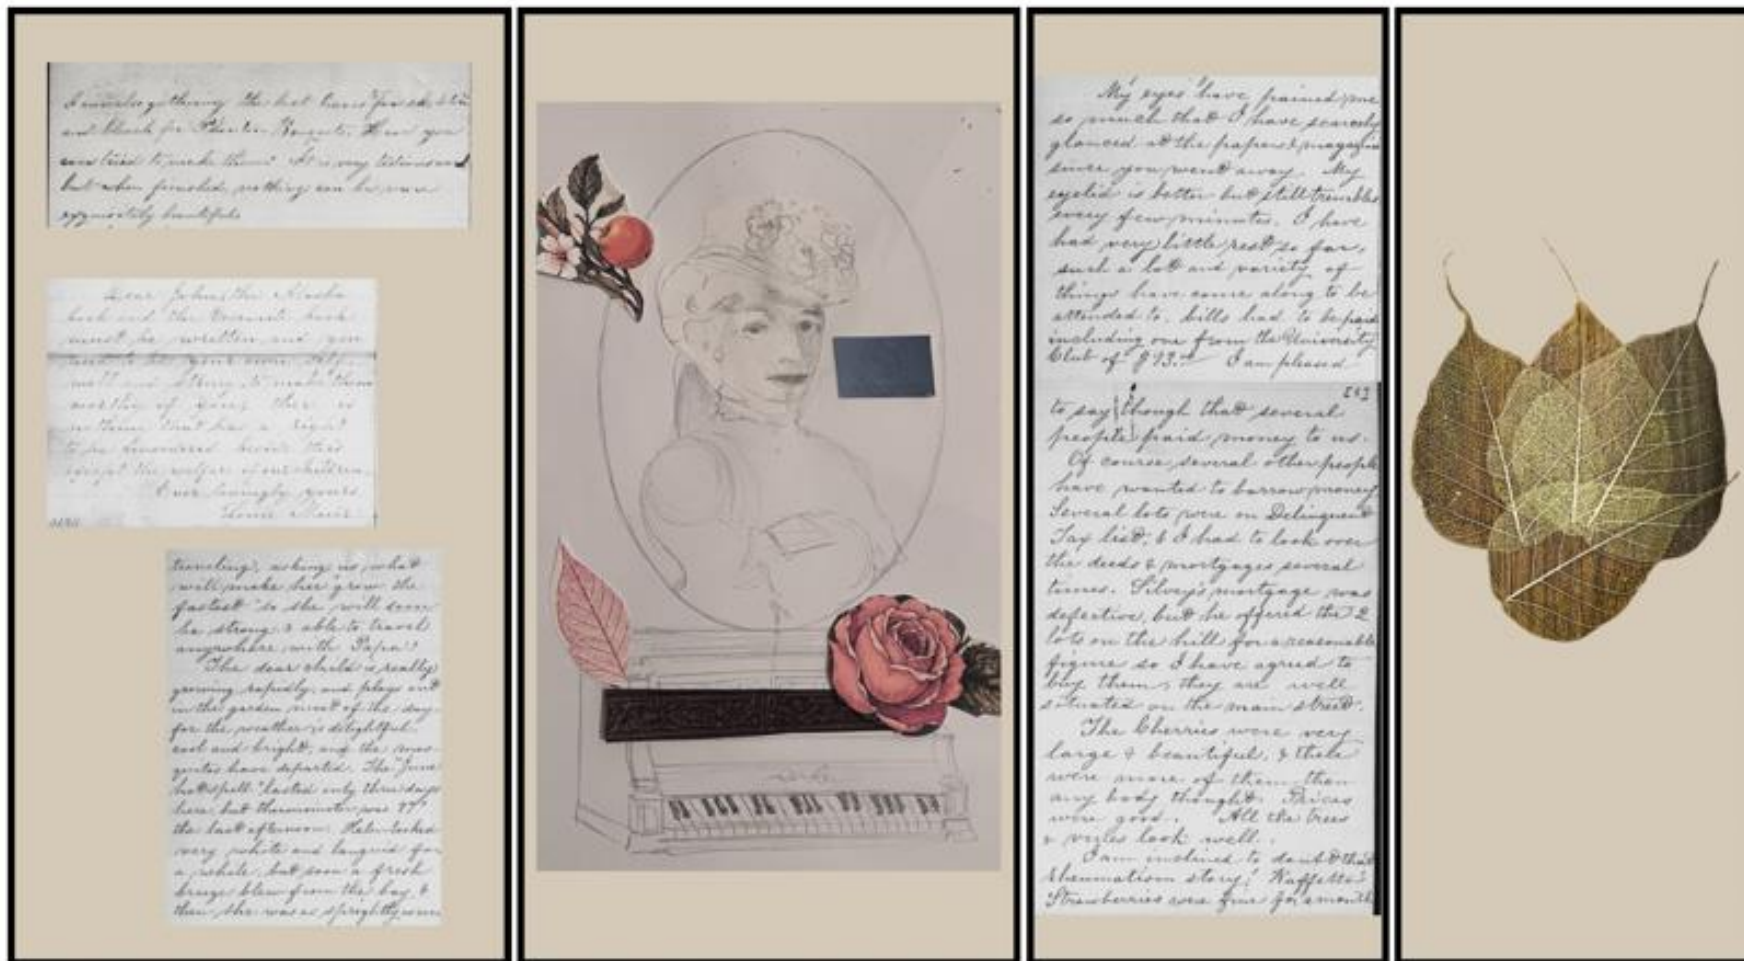 I am also gathering the best leaves for skeleton
and bleach for Phantom Bouquets. Have you
ever tried to make them? It is very tedious work
but when finished, nothing can be more
exquisitely beautiful.
Dear John, the Alaska
book and the Yosemite book
must be written and you
need to be your own self,
well and strong, to make them
worthy of you; there is
nothing that has a right
to be considered beside this
except the welfare of our children.
Ever lovingly yours
Louie Muir
traveling, asking us what
will make her grow the
fastest "so she will soon
be strong & able to travel
anywhere with Papa"!
The dear child is really
growing rapidly, and plays out
in the garden most of the day
for the weather is delightful
cool and bright, and the mos-
quitos have departed. The "June
hot spell" lasted only three days
here, but thermometer was 97°
the last afternoon. Helen looked
very white and languid for
a while, but soon a fresh
breeze blew from the bay, &
then she was as sprightly as ever
My eyes have pained me
so much that I have scarcely
glanced at the papers & magazines
since you went away. My
eyelid is better but still trembles
every few minutes. I have
had very little rest so far,
such a lot and variety of
things have come along to be
attended to. bills had to be paid
including one from the University
Club of $93.00 I am pleased
to say though that several
people paid money to us.
Of course, several other people
have wanted to borrow money
Several lots were on Delinquent
Tax list, & I had to look over
the deeds & mortgages several
times. Silvey's mortgage was
defective, but he offered the 2
lots on the hill for a reasonable
figure so I have agreed to
buy them, they are well
situated on the main street.
The Cherries were very
large & beautiful, & there
were more of them than
any body thought. Prices
were good. All the trees
& vines look well.
I am inclined to doubt that
rheumatism story!
Strawberries were fine for a month